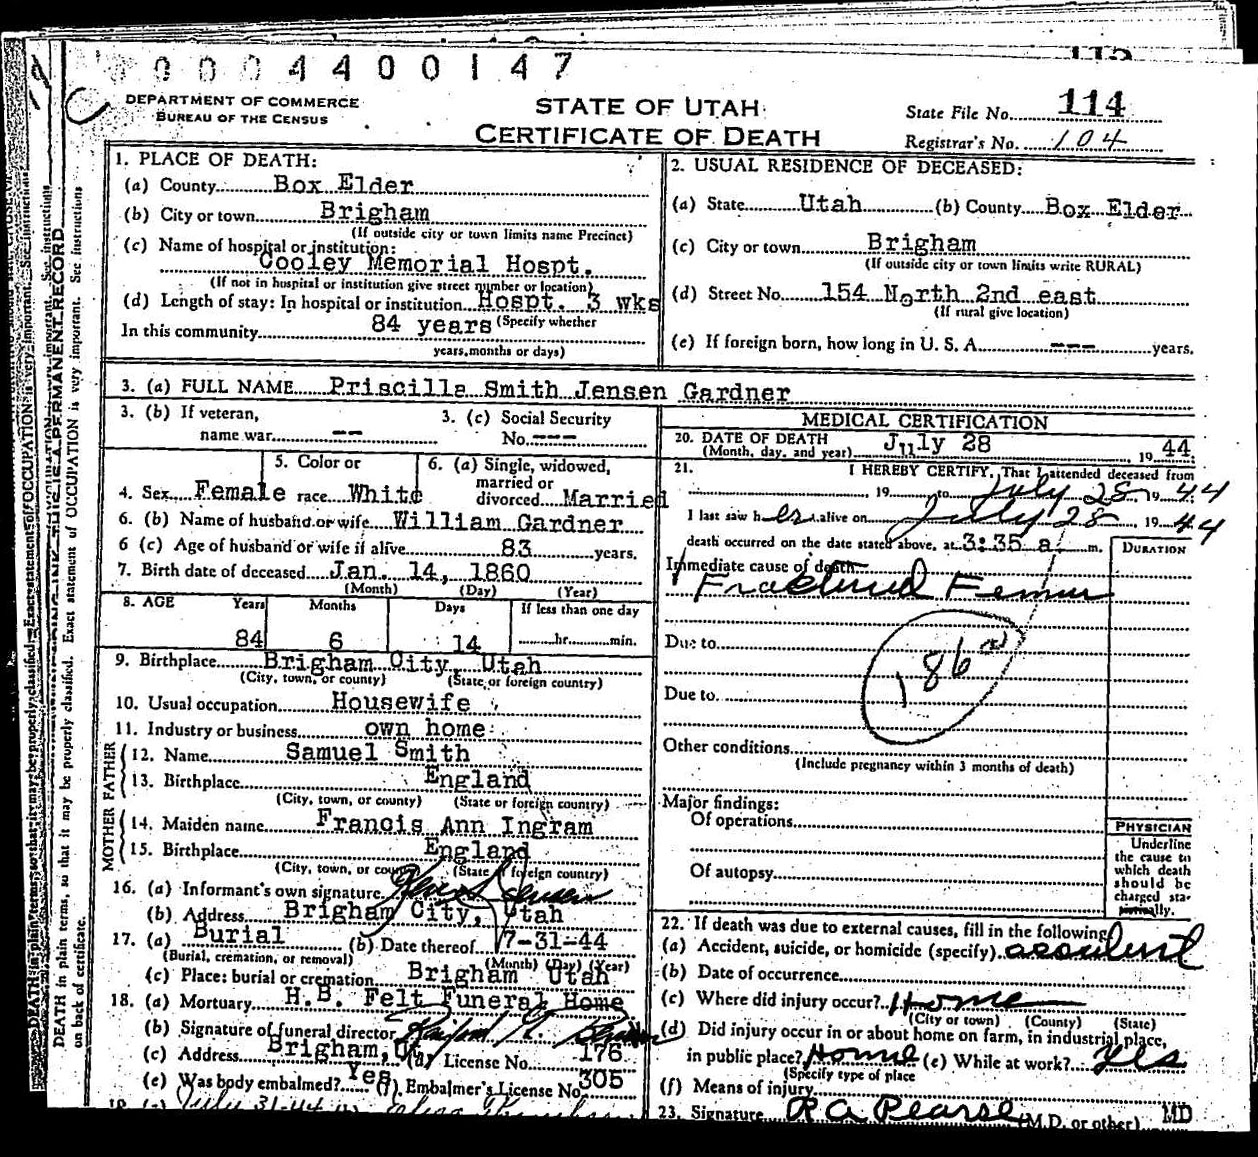 0000 4400147
DEPARTMENT OF COMMERCE
BUREAU OF THE CENSUS
STATE OF UTAH
CERTIFICATE OF DEATH
State File No. 114
Registrar's No. 104
1. PLACE OF DEATH:
(a) County Box Elder
(b) City or town Brigham
(If outside city or town limits name Precinct)
(c) Name of hospital or institution:
Cooley Memorial Hospt.
(If not in hospital or institution give street number or location)
(d) Length of stay: In hospital or institution Hospt. 3 wks
In this community 84 years (Specify whether
years, months or days)
2. USUAL RESIDENCE OF DECEASED:
(a) State Utah (b) County Box Elder
(c) City or town Brigham
(If outside city or town limits write RURAL)
(d) Street No. 154 North 2nd east
(If rural give location)
(e) If foreign born, how long in U. S. A. --- years.
3. (a) FULL NAME Priscilla Smith Jensen Gardner
3. (b) If veteran,
name war --
3. (c) Social Security
No. ---
4. Sex Female
5. Color or
race White
6. (a) Single, widowed,
married or
divorced Married
6. (b) Name of husband or wife William Gardner
6 (c) Age of husband or wife if alive 83 years.
7. Birth date of deceased Jan. 14, 1860
(Month) (Day) (Year)
8. AGE Years Months Days If less than one day
84 6 14 hr. min.
9. Birthplace Brigham City, Utah
(City, town, or county) (State or foreign country)
10. Usual occupation Housewife
11. Industry or business own home
FATHER
12. Name Samuel Smith
13. Birthplace England
(City, town, or county) (State or foreign country)
MOTHER
14. Maiden name Francis Ann Ingram
15. Birthplace England
(City, town, or county) (State or foreign country)
16. (a) Informant's own signature Jensen
(b) Address Brigham City, Utah
17. (a) Burial (b) Date thereof 7-31-44
(Burial, cremation, or removal) (Month) (Day) (Year)
(c) Place: burial or cremation Brigham Utah
18. (a) Mortuary H.B. Felt Funeral Home
(b) Signature of funeral director
(c) Address Brigham, Ut (d) License No. 176
(e) Was body embalmed? Yes (f) Embalmer's License No. 305
July 31-44
MEDICAL CERTIFICATION
20. DATE OF DEATH July 28 , 19 44
(Month, day, and year)
21. I HEREBY CERTIFY, That I attended deceased from
19 to July 28 19 44
I last saw her alive on July 28, 19 44
death occurred on the date stated above, at 3:35 a m.
DURATION
Immediate cause of death
Fractured Femur
Due to
186 a
Due to
Other conditions
(Include pregnancy within 3 months of death)
Major findings:
Of operations
Of autopsy
PHYSICIAN
Underline
the cause to
which death
should be
charged sta-
tistically.
22. If death was due to external causes, fill in the following
(a) Accident, suicide, or homicide (specify) accident
(b) Date of occurrence
(c) Where did injury occur? Home
(City or town) (County) (State)
(d) Did injury occur in or about home on farm, in industrial place,
in public place? Home (e) While at work? yes
(Specify type of place
(f) Means of injury
23. Signature R A Pearse (M.D. or other) MD
DEATH in plain terms, so that it may be properly classified. Exact statement of OCCUPATION is very important. See instructions
on back of certificate.